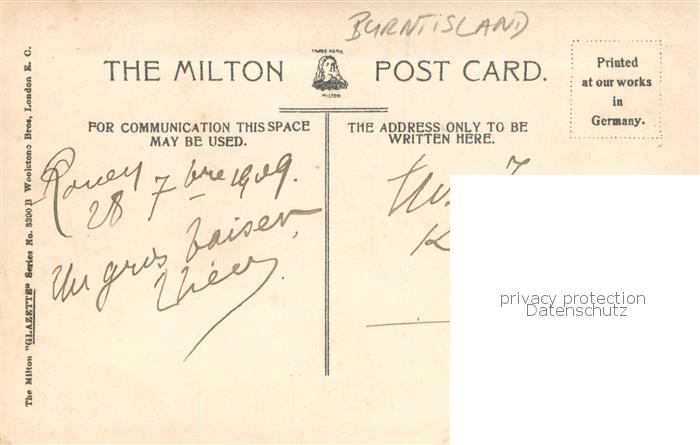 BURNTISLAND
TRADE MARK
MILTON
THE MILTON POST CARD.
Printed
at our works
in
Germany.
FOR COMMUNICATION THIS SPACE
MAY BE USED.
THE ADDRESS ONLY TO BE
WRITTEN HERE.
Rouen
28 7bre 1909.
Un gros baiser
The Milton "GLAZETTE" Series No. 3390 B Woolstone Bros, London E. C.
privacy protection
Datenschutz